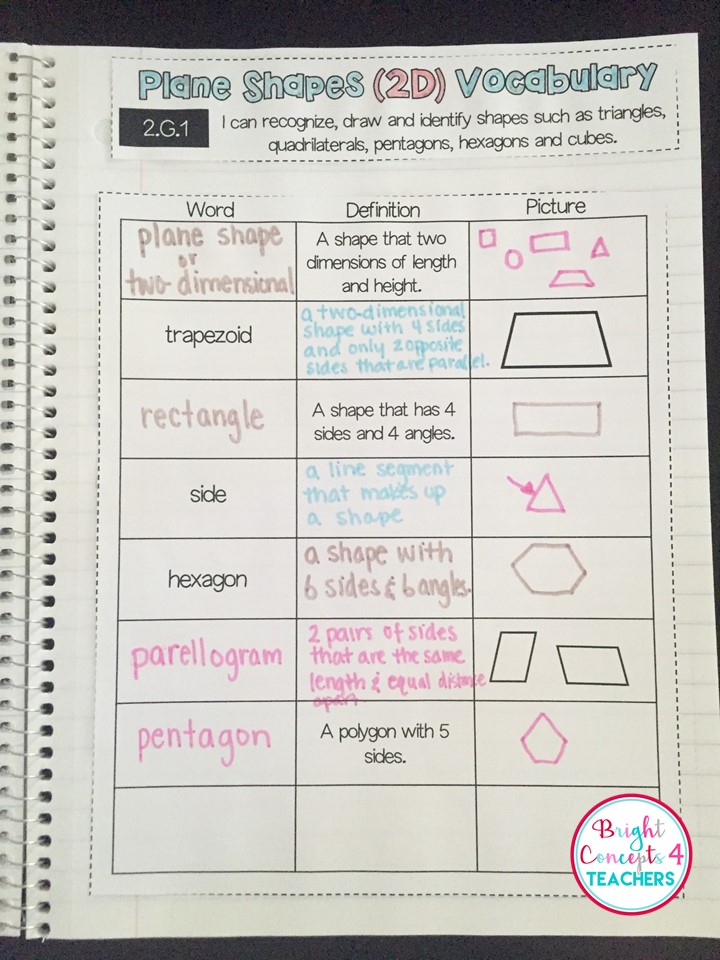 Plane Shapes (2D) Vocabulary
2.G.1
I can recognize, draw and identify shapes such as triangles,
quadrilaterals, pentagons, hexagons and cubes.
Word Definition Picture
plane shape
or
two-dimensional
A shape that two
dimensions of length
and height.
trapezoid
a two-dimensional
shape with 4 sides
and only 2 opposite
sides that are parallel.
rectangle
A shape that has 4
sides and 4 angles.
side
a line segment
that makes up
a shape
hexagon
a shape with
6 sides & 6 angles.
parellogram
2 pairs of sides
that are the same
length & equal distance
apart.
pentagon
A polygon with 5
sides.
Bright
Concepts 4
TEACHERS